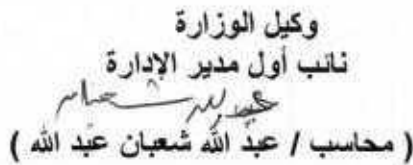 وكيل الوزارة
نائب أول مدير الإدارة
عبد الله شعبان
( محاسب / عبد الله شعبان عبد الله )